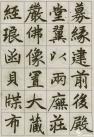 前建後殿
堂翼以兩廡莊
嚴佛像置大藏
經琅函貝牒布